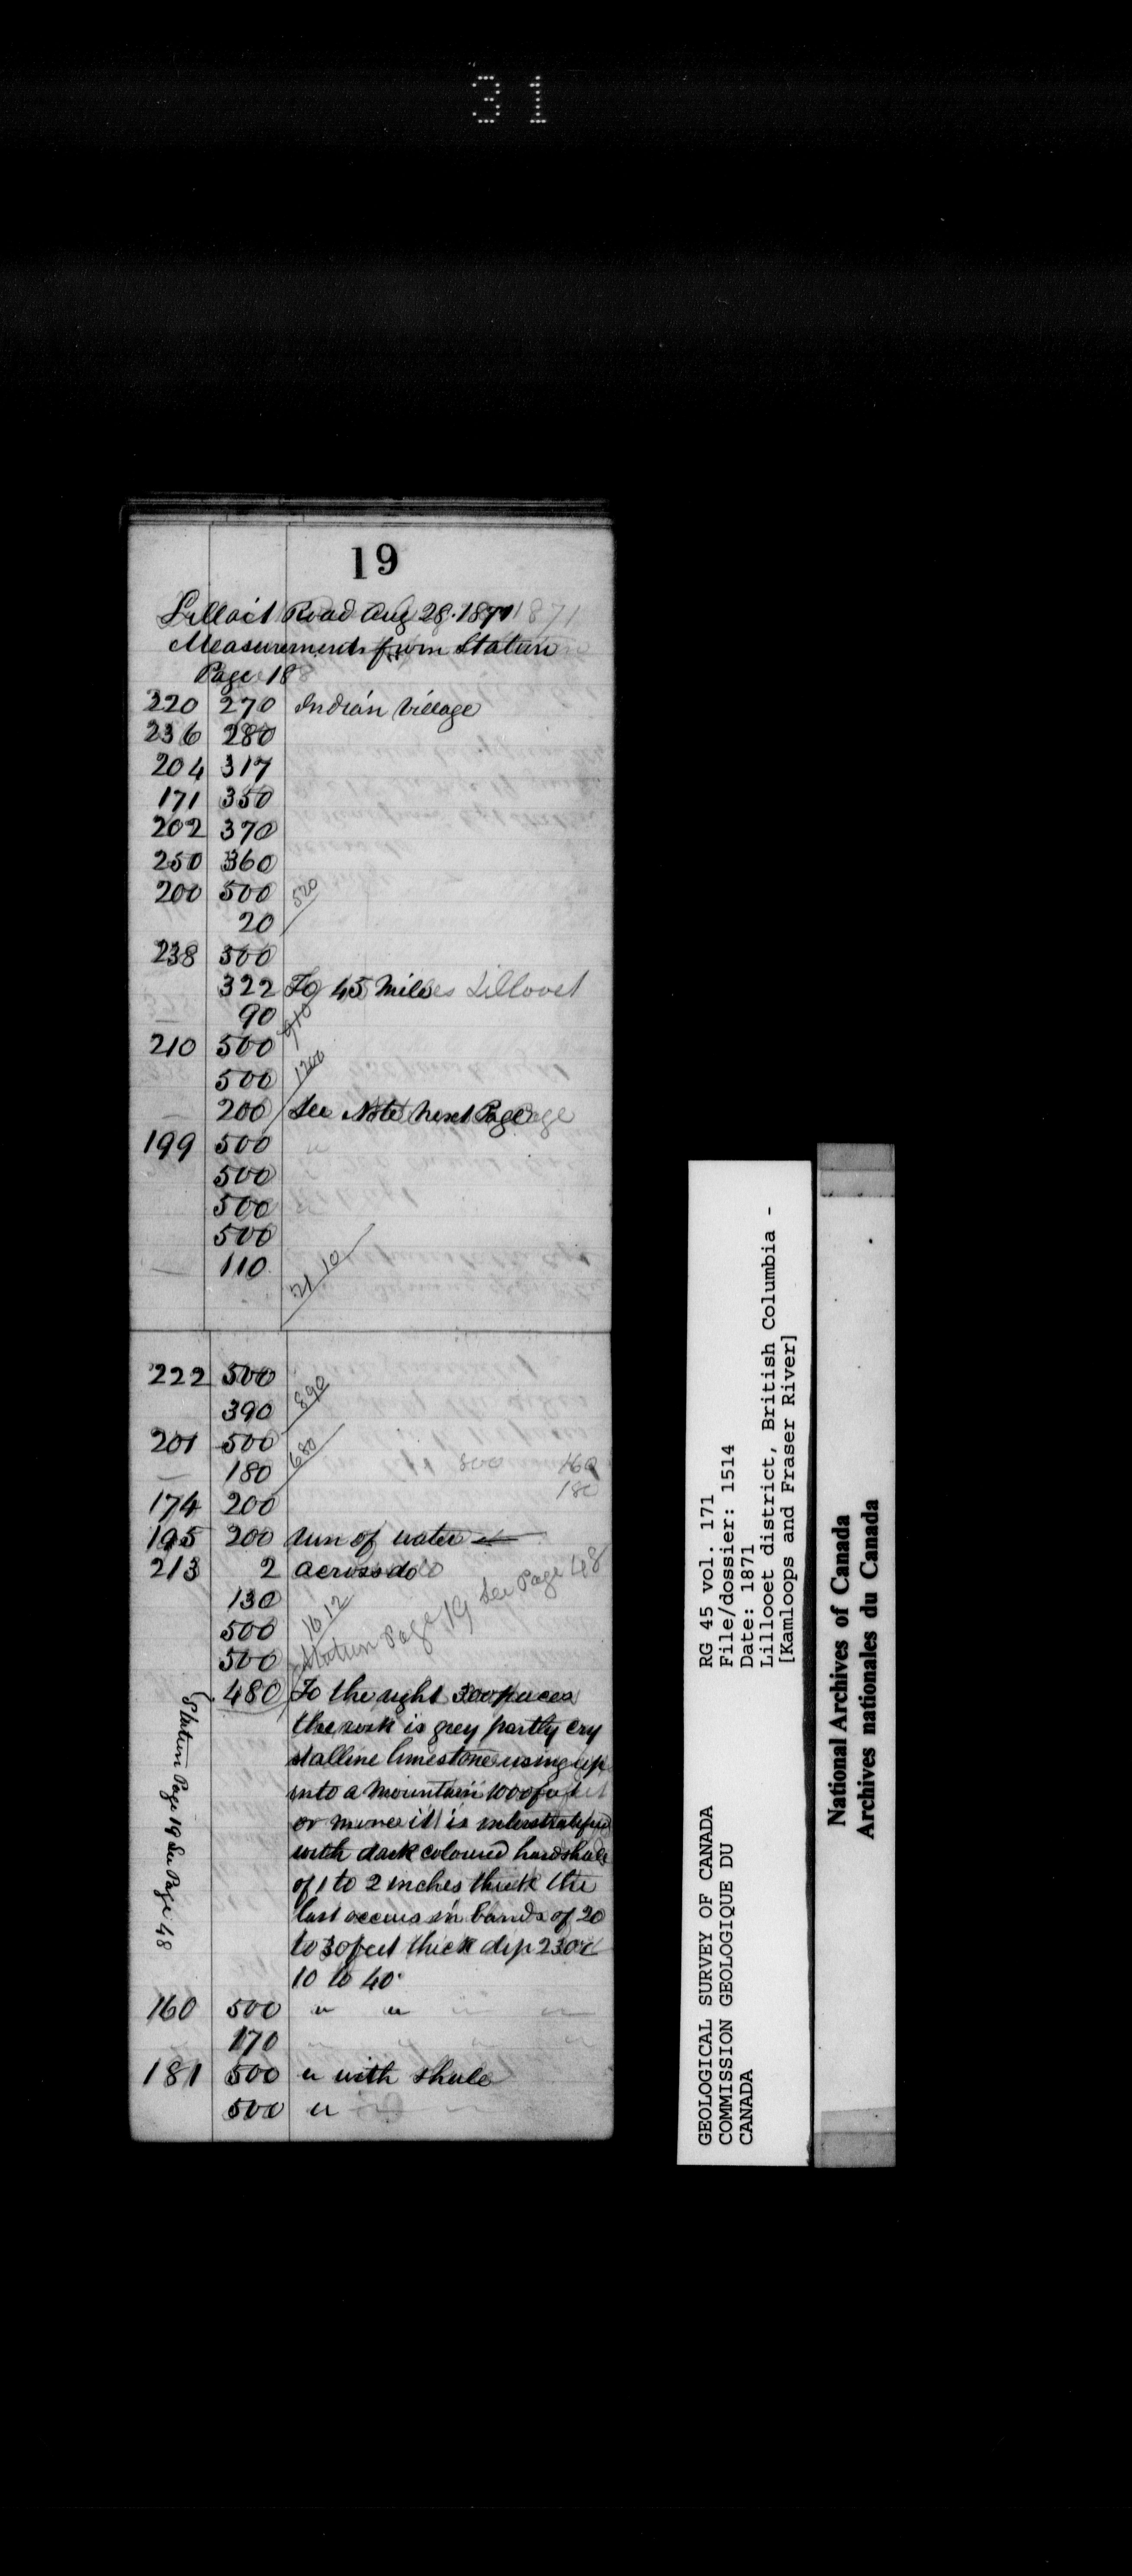 31
19
Lilloit Road Aug 28. 1871
Measurements from Station
Page 18
220 270 Indian Village
236 280
204 317
171 350
202 370
250 360
200 500 520
20
238 500
322 To 45 Miles Lillooet
90 910
210 500
500 1200
200 See Note next Page
199 500
500
500
500
110 2110
222 500
390 890
201 500 680
180 300 160
180
174 200
195 200 run of water
213 2 across do
130
500 1612
500 Station Page 19 See Page 48
480 To the right 300 paces
the rock is grey partly cry
stalline limestone rising up
into a mountain 1000 feet
or more it is interstratified
with dark coloured hard shale
of 1 to 2 inches thick the
last occurs in bands of 20
to 30 feet thick dip 230
10 to 40°
Station Page 19 See Page 48
160 500 " "
170
181 500 " with shale
500 "
GEOLOGICAL SURVEY OF CANADA
COMMISSION GEOLOGIQUE DU
CANADA
RG 45 vol. 171
File/dossier: 1514
Date: 1871
Lillooet district, British Columbia -
[Kamloops and Fraser River]
National Archives of Canada
Archives nationales du Canada